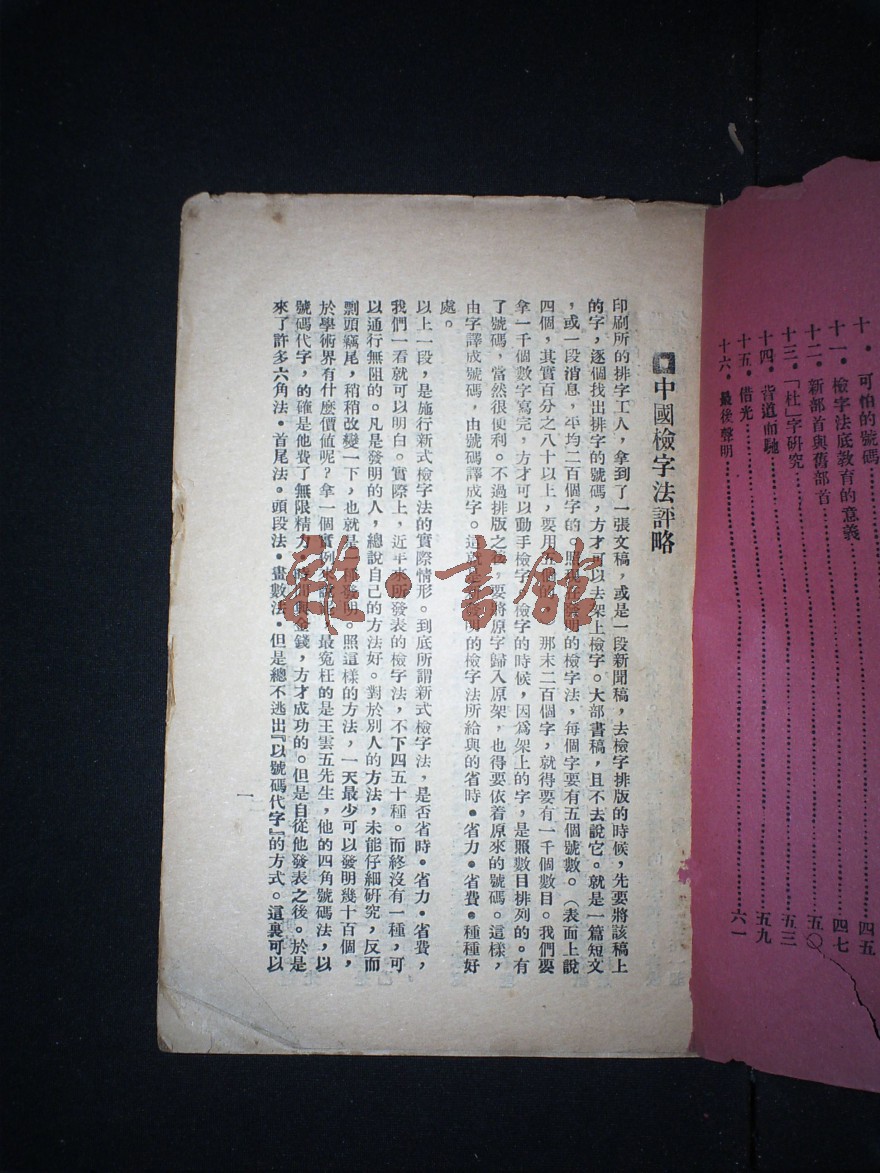 十．可怕的號碼……四五
十一．檢字法底教育的意義……四七
十二．新部首與舊部首……五〇
十三．「杜」字研究……五三
十四．背道而馳……五九
十五．借光
十六．最後聲明……六一
中國檢字法評略
印刷所的排字工人，拿到了一張文稿，或是一段新聞稿，去檢字排版的時候，先要將該稿上
的字，逐個找出排字的號碼，方才可以去架上檢字。大部書稿，且不去說它。就是一篇短文
，或一段消息，平均二百個字的。照現在發明的檢字法，每個字要有五個號數。（表面上說
四個，其實百分之八十以上，要用五個的）那末二百個字，就得要有一千個數目。我們要
拿一千個數字寫完，方才可以動手檢字。檢字的時候，因爲架上的字，是照數目排列的。有
了號碼，當然很便利。不過排版之後，要將原字歸入原架，也得要依着原來的號碼。這樣，
由字譯成號碼，由號碼譯成字。這就是發明的檢字法所給與的省時．省力．省費．種種好
處。
以上一段，是施行新式檢字法的實際情形。到底所謂新式檢字法，是否省時．省力．省費，
我們一看就可以明白。實際上，近年來所發表的檢字法，不下四五十種。而終沒有一種，可
以通行無阻的。凡是發明的人，總說自己的方法好。對於別人的方法，未能仔細研究，反而
剽頭竊尾，稍稍改變一下，也就是一種發明。照這樣的方法，一天最少可以發明幾十百個，
於學術界有什麼價値呢？拿一個實例來說吧，最冤枉的是王雲五先生，他的四角號碼法，以
號碼代字，的確是他費了無限精力，時間與金錢，方才成功的。但是自從他發表之後。於是
來了許多六角法．首尾法．頭段法．畫數法．但是總不逃出『以號碼代字』的方式。這裏可以
一
雜·書館